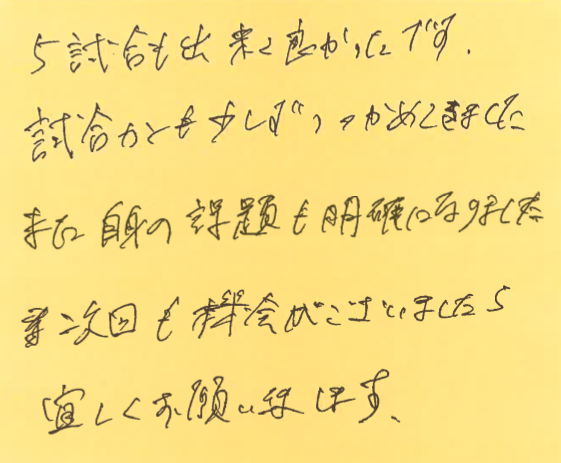 5試合も出来て良かったです.
試合カンも少しずつつかめてきました
また自身の課題も明確になりました
次回も機会がございましたら
宜しくお願いします、